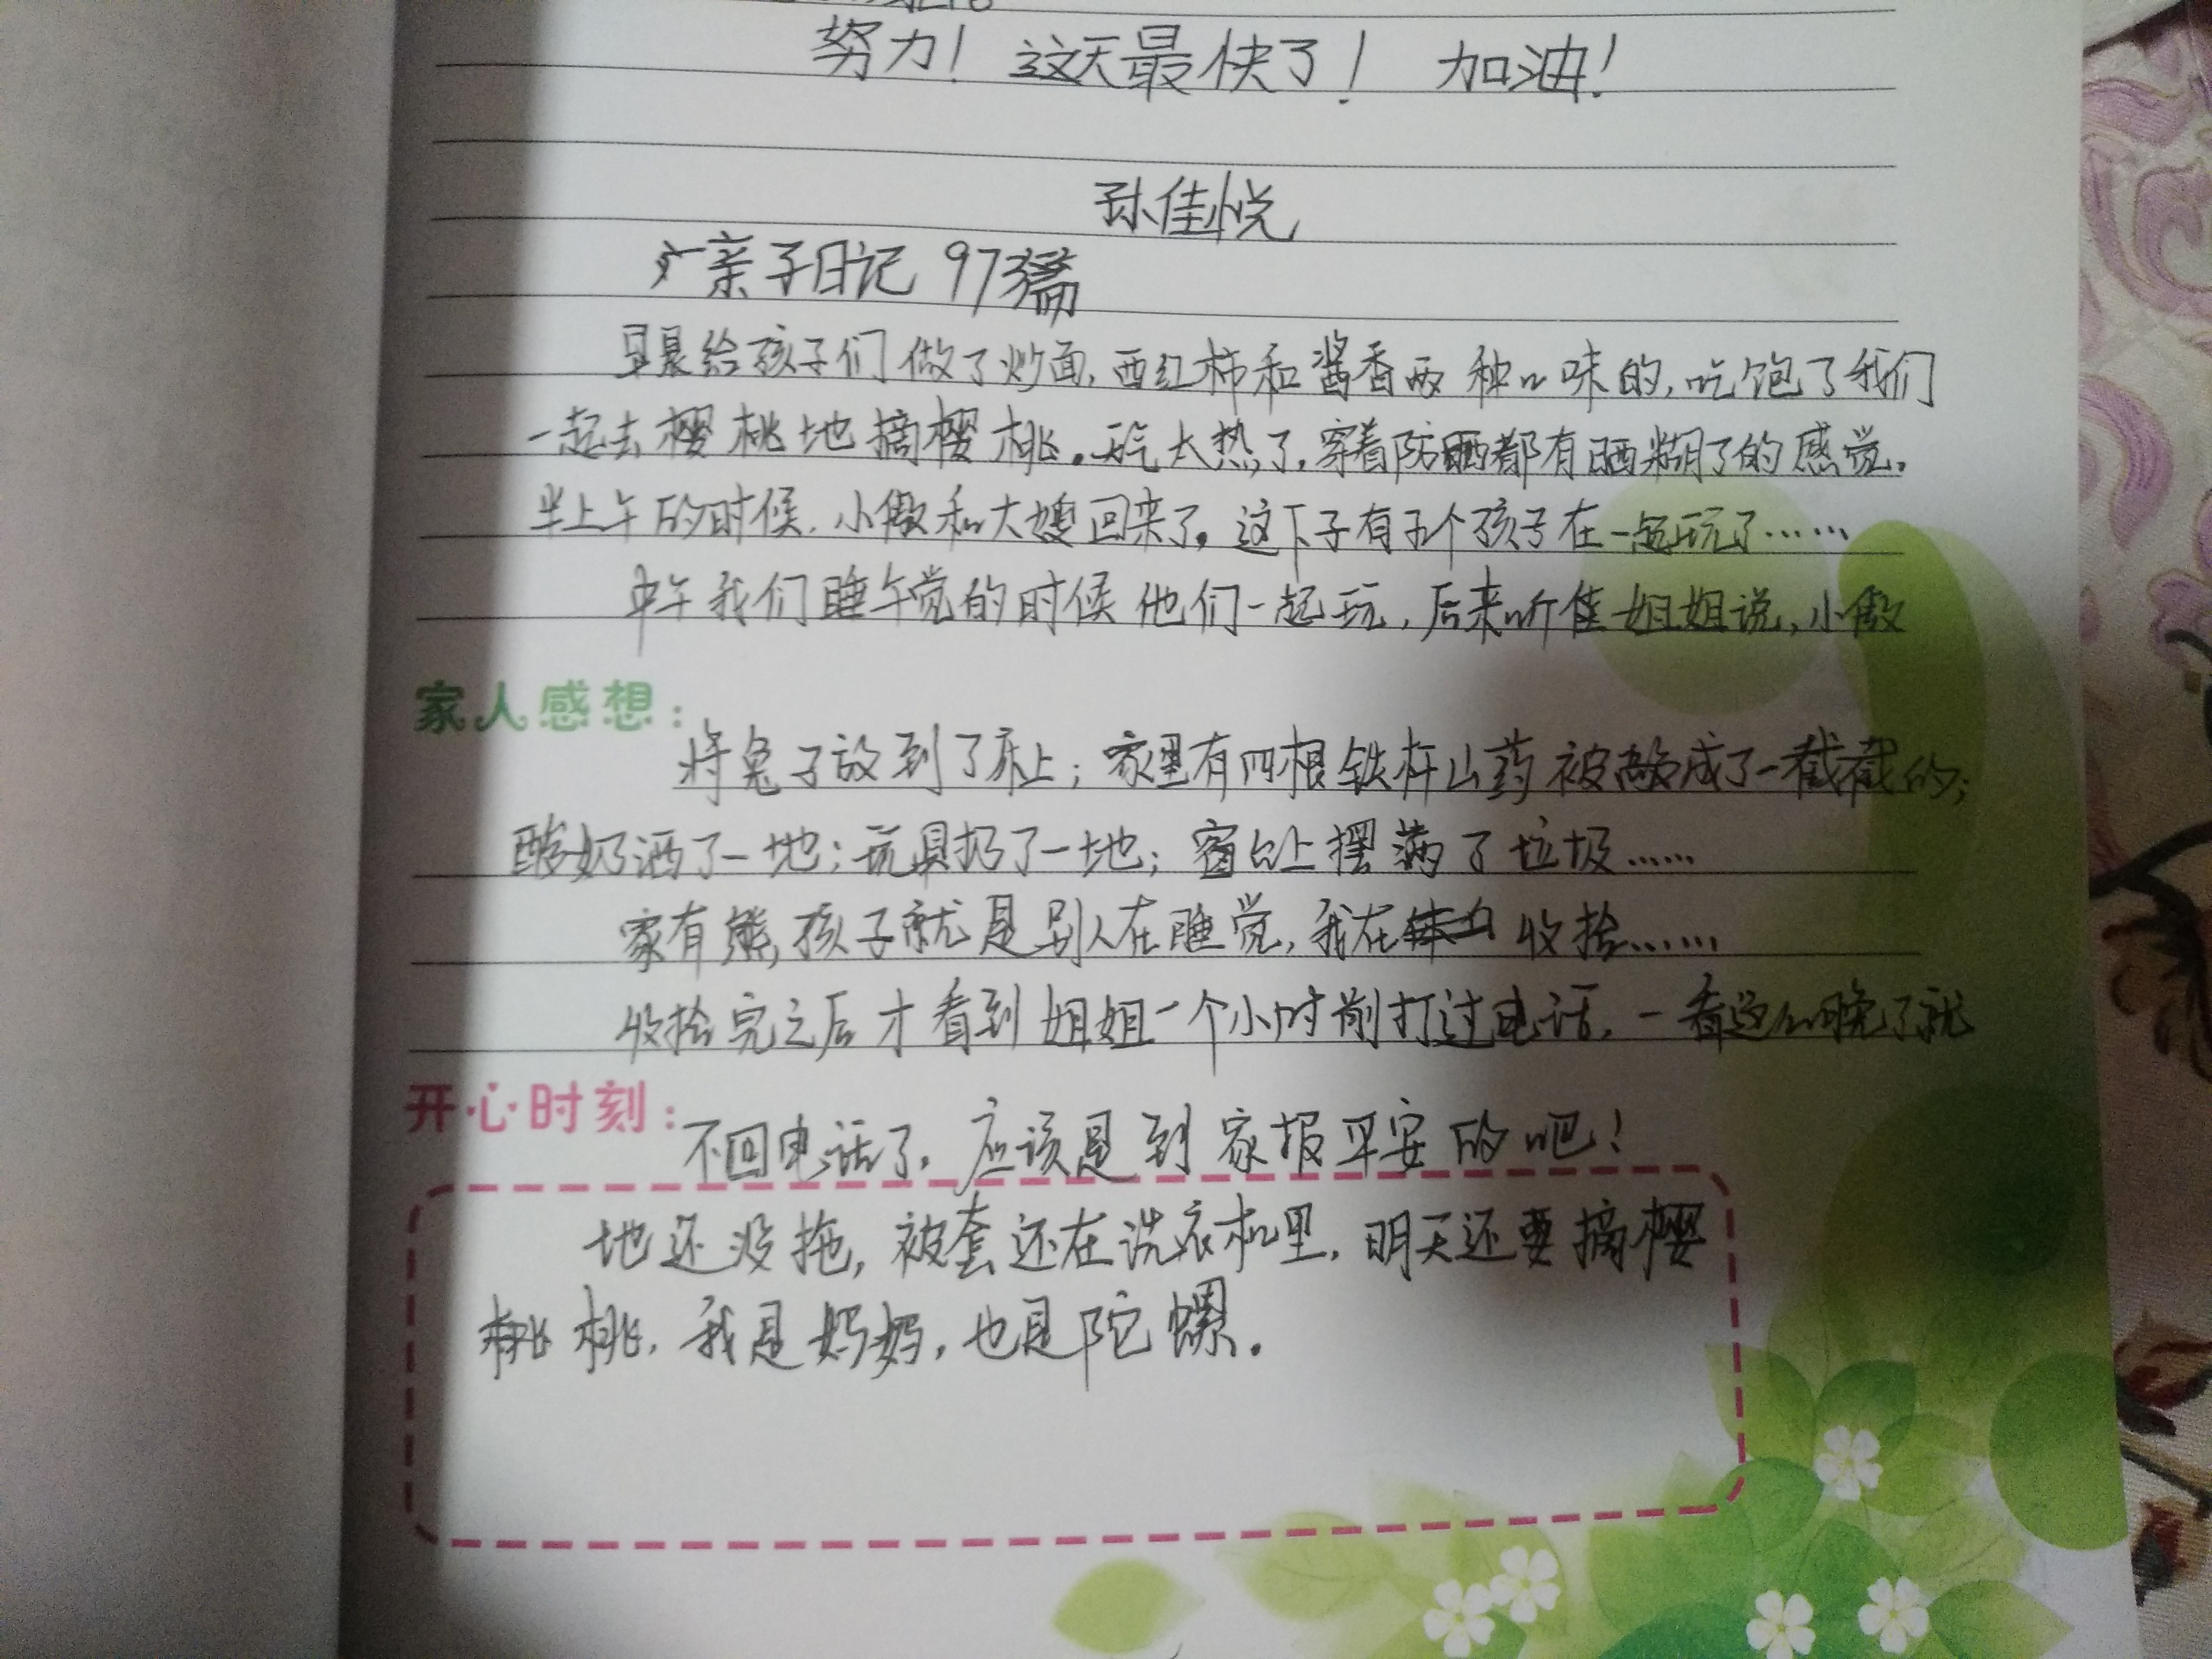 努力！这天最快了！ 加油！
孙佳悦
亲子日记 97篇
早晨给孩子们做了炒面，西红柿和酱香两种口味的，吃饱了我们
一起去樱桃地摘樱桃。天气太热了，穿着防晒都有晒糊了的感觉。
半上午的时候，小傲和大嫂回来了。这下子有五个孩子在一起玩了……
中午我们睡午觉的时候他们一起玩，后来听佳姐姐说，小傲
家人感想：
将兔子放到了床上；家里有四根铁杆山药被敲成了一截截的；
酸奶洒了一地；玩具扔了一地；窗台上摆满了垃圾……
家有熊孩子就是别人在睡觉，我在收拾……
收拾完之后才看到姐姐一个小时前打过电话，一看这么晚了就
开心时刻：
不回电话了。应该是到家报平安的吧！
地还没拖，被套还在洗衣机里，明天还要摘樱
桃，我是妈妈，也是陀螺。